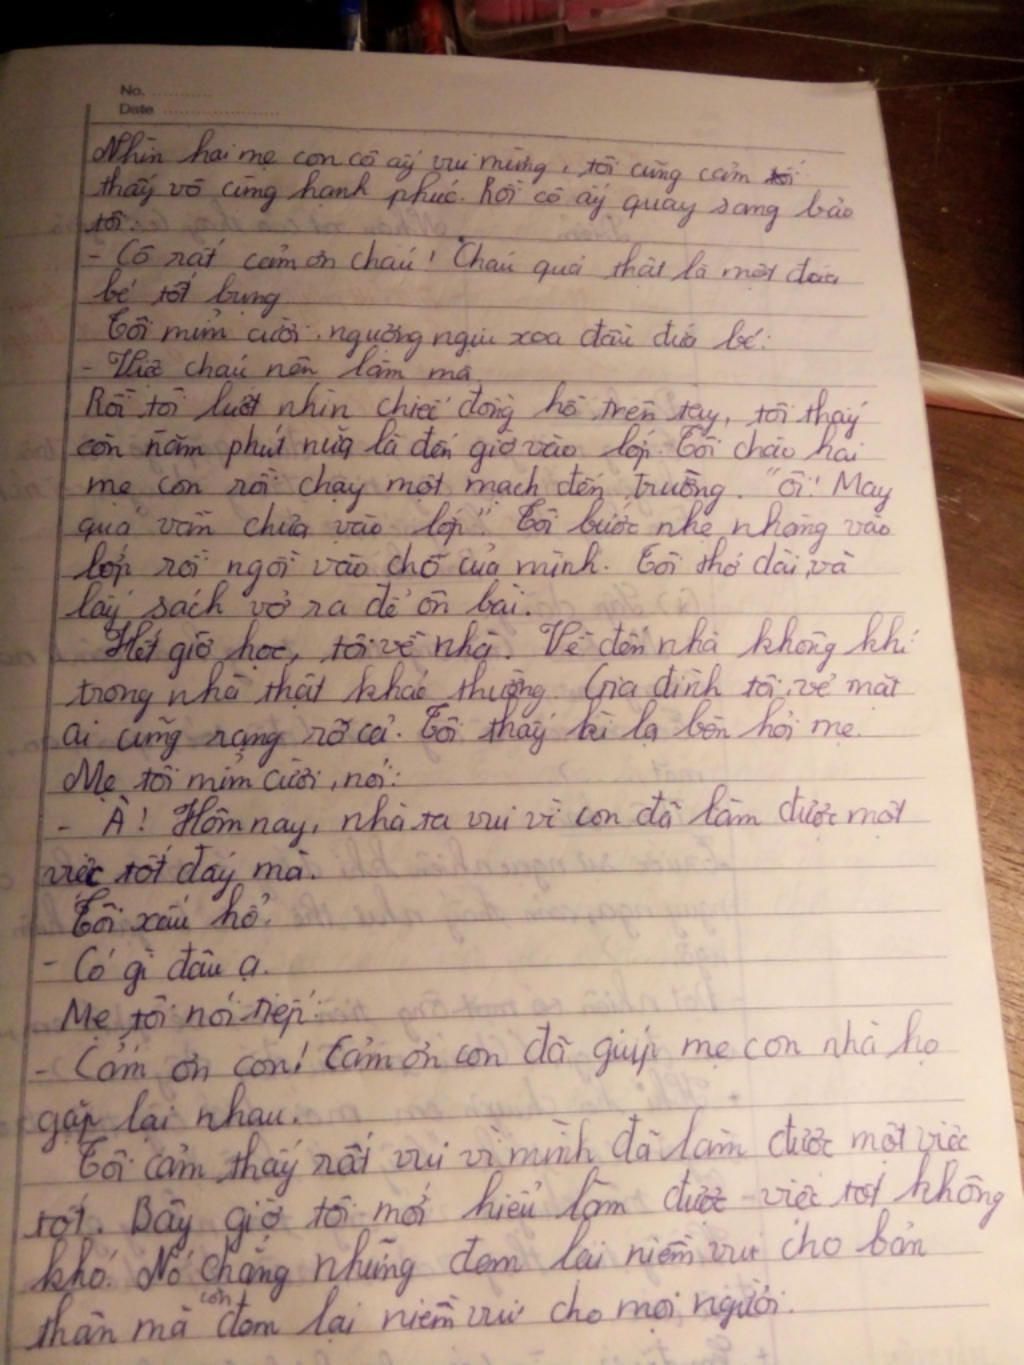 No.
Date
Nhìn hai mẹ con cô ấy vui mừng, tôi cũng cảm
thấy vô cùng hạnh phúc. Rồi cô ấy quay sang bảo
tôi:
- Cô rất cảm ơn cháu! Cháu quả thật là một đứa
bé tốt bụng
Tôi mỉm cười, ngượng ngịu xoa đầu đứa bé:
- Việc cháu nên làm mà
Rồi tôi lướt nhìn chiếc đồng hồ trên tay, tôi thấy
còn năm phút nữa là đến giờ vào lớp. Tôi chào hai
mẹ con rồi chạy một mạch đến trường. "Ôi! May
quá vẫn chưa vào lớp". Tôi bước nhẹ nhàng vào
lớp rồi ngồi vào chỗ của mình. Tôi thở dài và
lấy sách vở ra để ôn bài.
Hết giờ học, tôi về nhà. Về đến nhà không khí
trong nhà thật khác thường. Gia đình tôi, vẻ mặt
ai cũng rạng rỡ cả. Tôi thấy kì lạ bèn hỏi mẹ.
Mẹ tôi mỉm cười, nói:
- À! Hôm nay, nhà ta vui vì con đã làm được một
việc tốt đấy mà.
Tôi xấu hổ:
- Có gì đâu ạ.
Mẹ tôi nói tiếp:
- Cảm ơn con! Cảm ơn con đã giúp mẹ con nhà họ
gặp lại nhau.
Tôi cảm thấy rất vui vì mình đã làm được một việc
tốt. Bây giờ tôi mới hiểu làm được việc tốt không
khó. Nó chẳng những đem lại niềm vui cho bản
thân mà còn đem lại niềm vui cho mọi người.